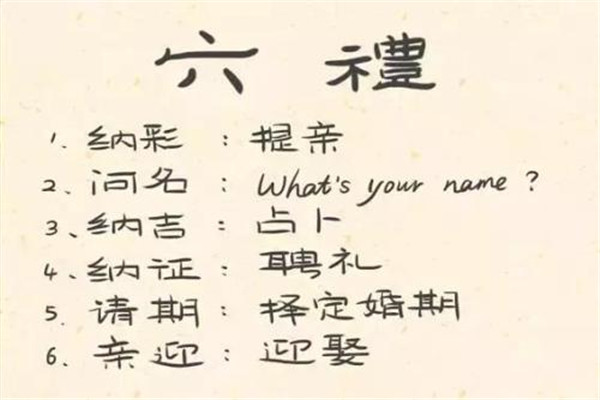 六禮
1. 纳彩：提亲
2、问名：What's your name?
3、纳吉：占卜
4、纳证：聘礼
5. 请期：择定婚期
6. 亲迎：迎娶